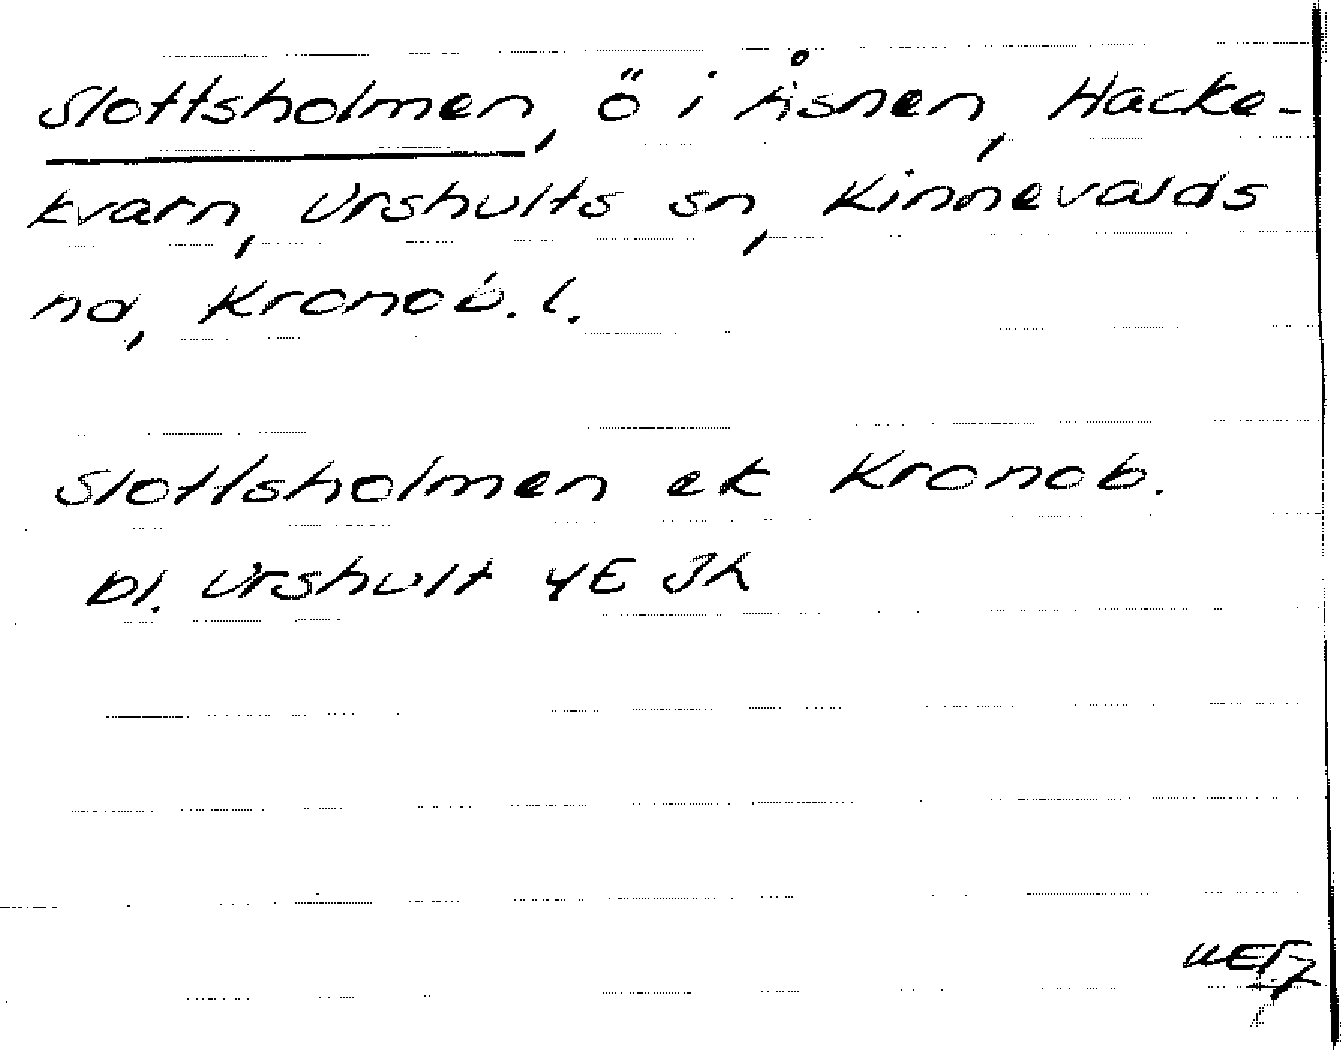 Slottsholmen, ö i Åsnen, Hacke-
kvarn, Urshults sn, Kinnevalds
hd, Kronob. l.
Slottsholmen ek Kronob.
bl. Urshult 4E Jh